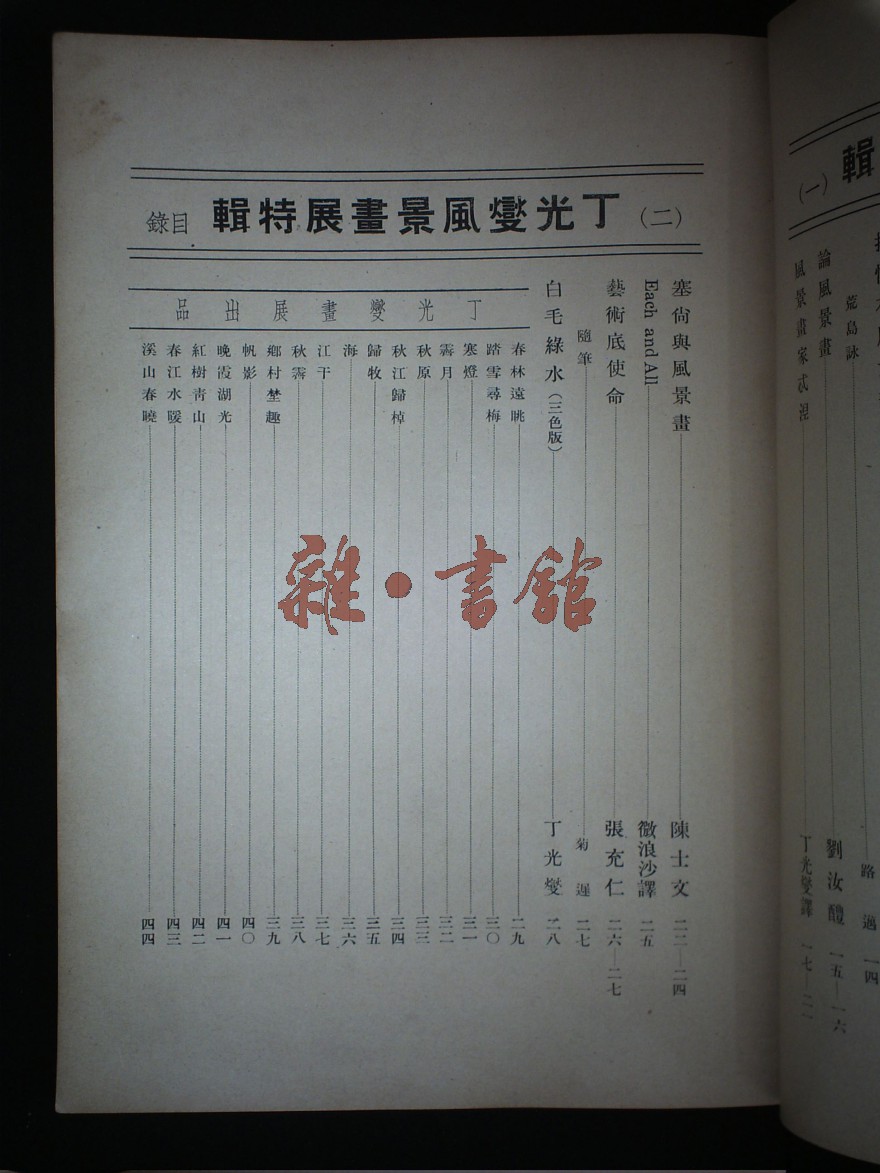 丁光燮風景畫展特輯（二）目錄
塞尙與風景畫 陳士文 二二—二四
Each and All 微浪沙譯 二五
藝術底使命 張充仁 二六—二七
隨筆 菊遲 二七
白毛綠水（三色版） 丁光燮 二八
丁光燮畫展出品
春林遠眺 二九
踏雪尋梅 三〇
寒燈 三一
霽月 三二
秋原 三三
秋江歸棹 三四
歸牧 三五
海 三六
江干 三七
秋霽 三八
鄉村埜趣 三九
帆影 四〇
晚霞湖光 四一
紅樹靑山 四二
春江水暖 四三
溪山春曉 四四
雜·書舘
輯（一）
荒島詠 路邁 一四
論風景畫 劉汝醴 一五—一六
風景畫家式涅 丁光燮譯 一七—二一